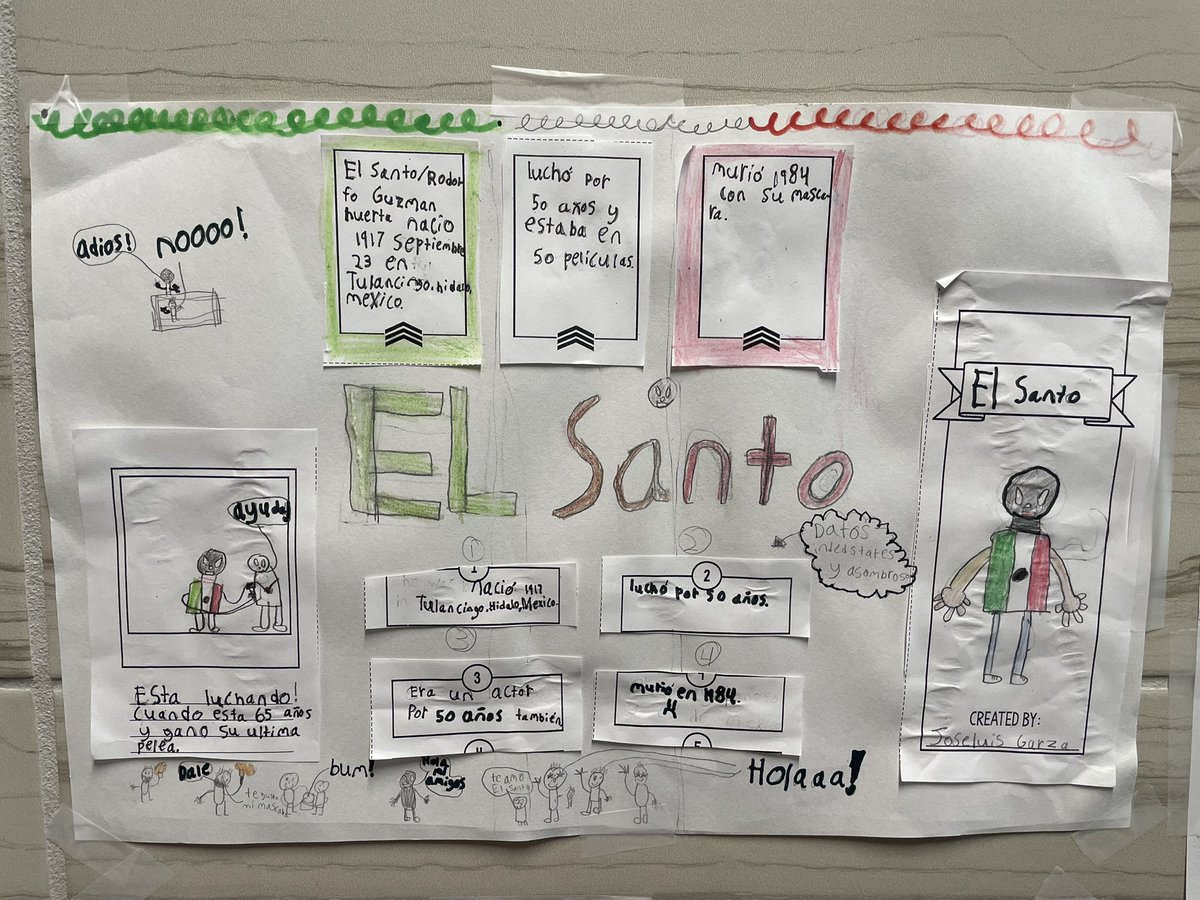 adios!
noooo!
El Santo/Rodol
fo Guzman
huerta nacio
1917 septiembre
23 en
Tulancingo.hidalo,
mexico.
luchó por
50 años y
estaba en
50 películas.
murió 1984
con su masca
ra.
EL Santo
El Santo
CREATED BY:
Joseluis Garza
Datos
y asombroso
ayuda!
Esta luchando!
cuando esta 65 años
y gano su ultima
pelea.
1
1
nació 1917
Tulancingo.Hidalo,Mexico.
2
2
luchó por 50 años.
3
3
Era un actor
Por 50 años también
4
murió en 1984.
4
5
Dale
bum!
Hola
mi
amigos
te amo
El Santo
Holaaa!